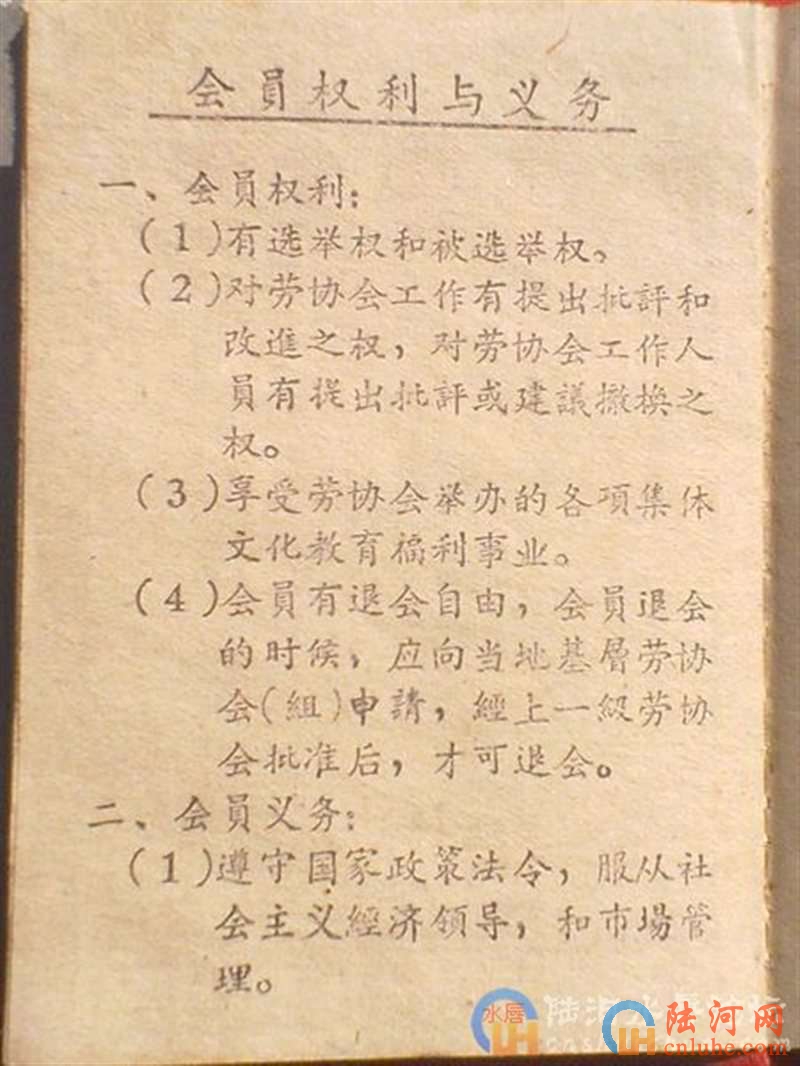 会員权利与义务
一、会員权利：
(1)有选举权和被选举权。
(2)对劳协会工作有提出批評和
改進之权，对劳协会工作人
員有提出批評或建議撤换之
权。
(3)享受劳协会举办的各項集体
文化教育福利事业。
(4)会員有退会自由，会員退会
的时候，应向当地基層劳协
会(組)申請，經上一級劳协
会批准后，才可退会。
二、会員义务：
(1)遵守国家政策法令，服从社
会主义經济領导，和市場管
理。
水唇
陆河网
cnluhe.com